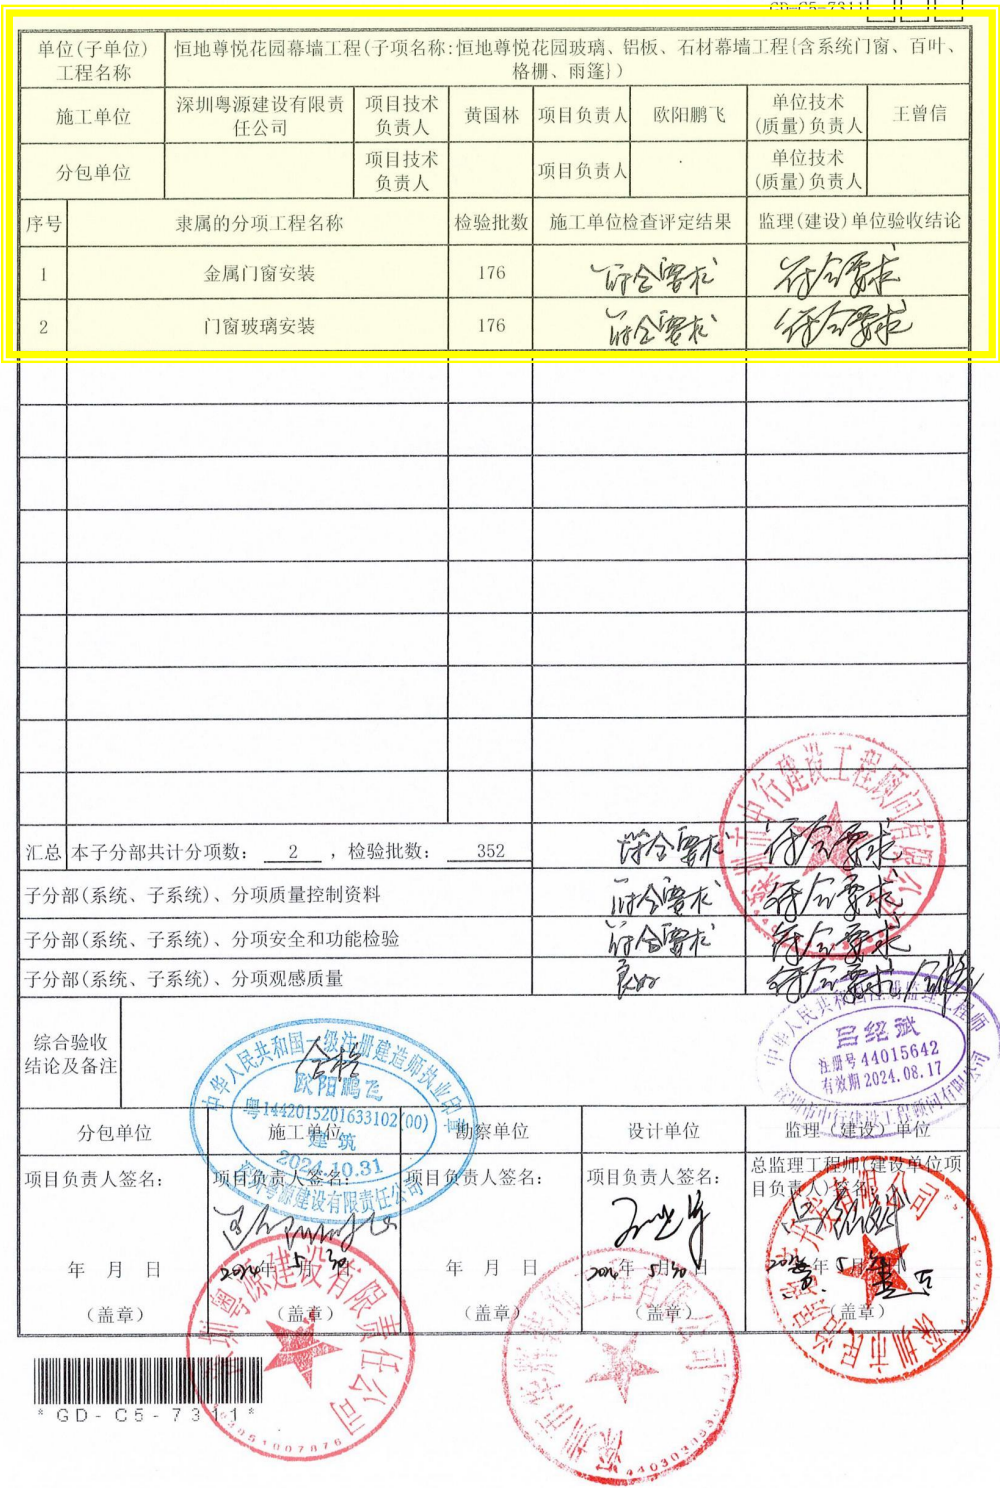 GD-C5-7311
单位(子单位) 工程名称 恒地尊悦花园幕墙工程(子项名称:恒地尊悦花园玻璃、铝板、石材幕墙工程{含系统门窗、百叶、
格栅、雨篷})
施工单位 深圳粤源建设有限责任公司 项目技术负责人 黄国林 项目负责人 欧阳鹏飞 单位技术(质量)负责人 王曾信
分包单位 项目技术负责人 项目负责人 单位技术(质量)负责人
序号 隶属的分项工程名称 检验批数 施工单位检查评定结果 监理(建设)单位验收结论
1 金属门窗安装 176 符合要求 符合要求
2 门窗玻璃安装 176 符合要求 符合要求
汇总 本子分部共计分项数: 2 ,检验批数: 352 符合要求 符合要求
子分部(系统、子系统)、分项质量控制资料 符合要求 符合要求
子分部(系统、子系统)、分项安全和功能检验 符合要求 符合要求
子分部(系统、子系统)、分项观感质量 良好 符合要求,合格
综合验收
结论及备注
合格
中华人民共和国二级注册建造师执业印章
欧阳鹏飞
粤1442015201633102(00)
建筑
2024.10.31
深圳粤源建设有限责任公司
中华人民共和国注册监理工程师
吕绍斌
注册号44015642
有效期2024.08.17
深圳市中行建设工程顾问有限公司
深圳市中行建设工程顾问有限公司
分包单位 施工单位 勘察单位 设计单位 监理(建设)单位
项目负责人签名: 项目负责人签名: 项目负责人签名: 项目负责人签名: 总监理工程师(建设单位项
目负责人)签名:
年 月 日 2024年5月30日 年 月 日 2024年5月30日 年5月
(盖章) (盖章) (盖章) (盖章) (盖章)
深圳粤源建设有限责任公司
*GD-C5-7311*